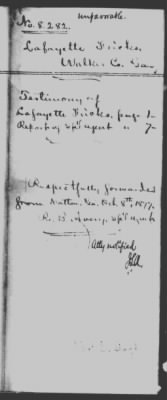 unfavorable.
No. 8.282.
Lafayette
Walker Co. Ga.
Testimony of
Lafayette page 1
Reporting Sp'l agent " 7
Respectfully forwarded
from Dalton, Ga. Oct. 8th, 1877.
R. B. Avery, Sp'l Agent
Atty notified